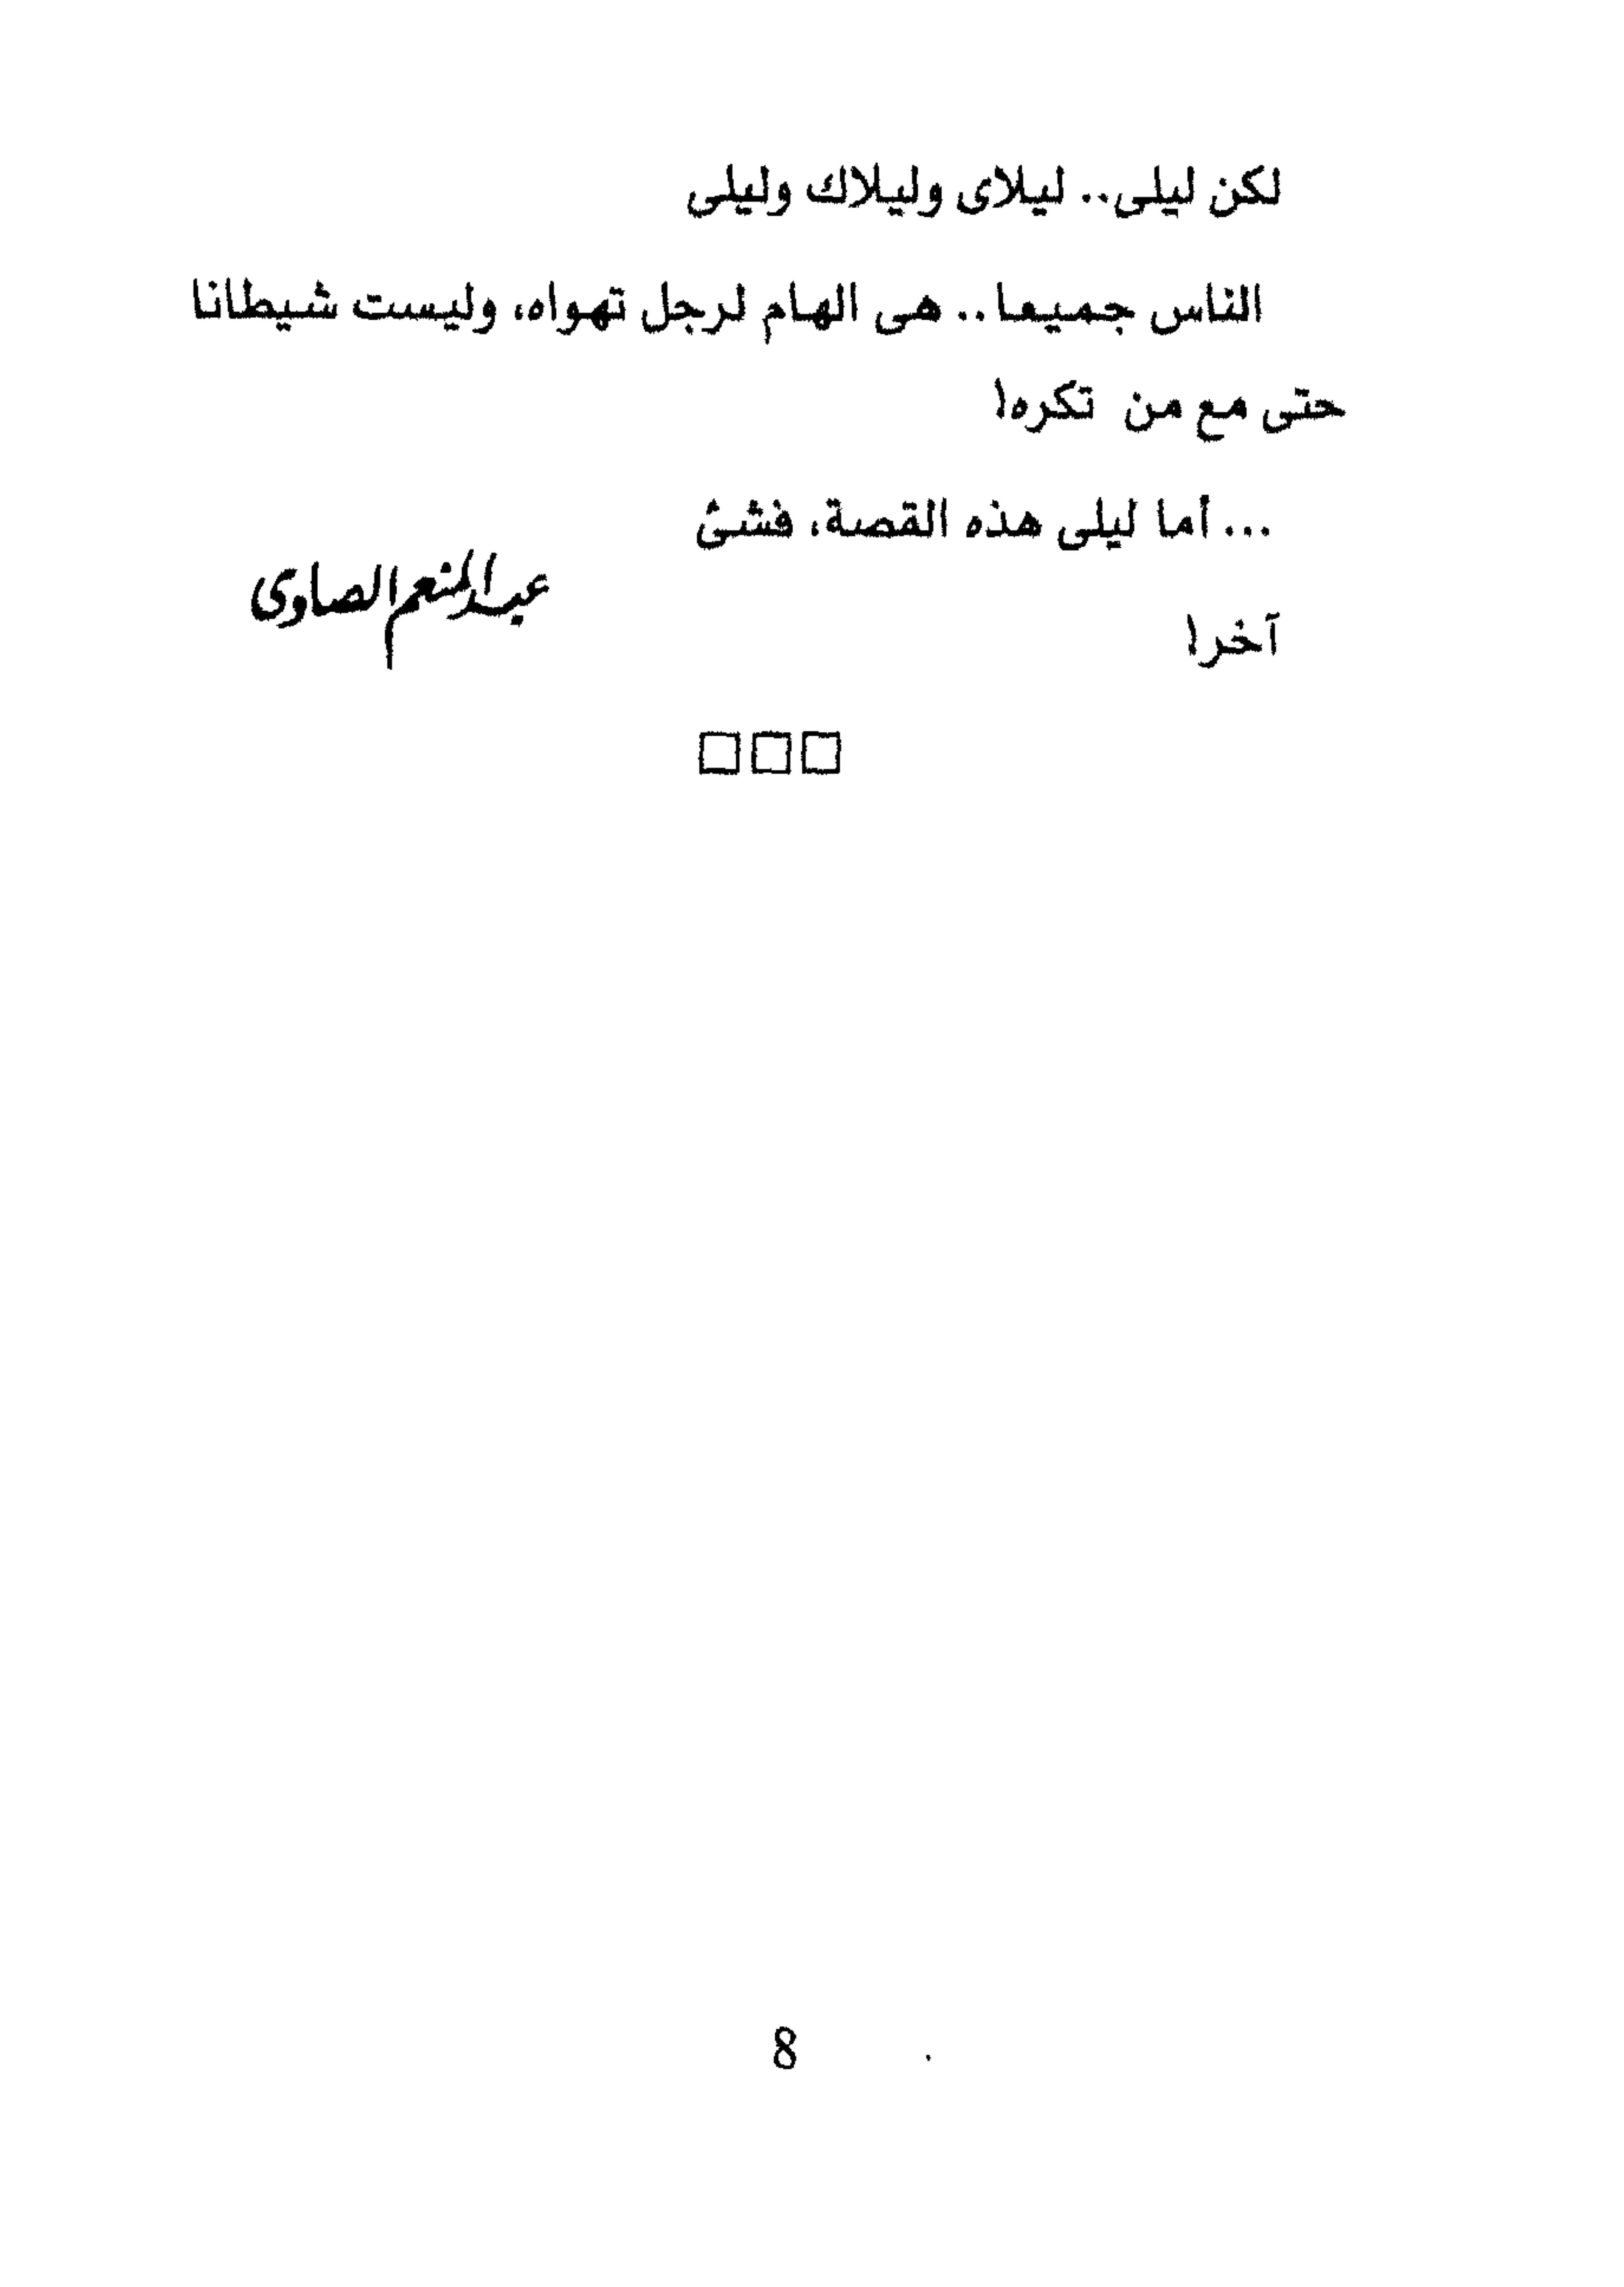 لكن ليلى.. ليلاى وليلاك وليلى
الناس جميعا.. هى الهام لرجل تهواه، وليست شيطانا
حتى مع من تكره!
... أما ليلى هذه القصة، فشئ
آخر!
عبد المنعم الصاوى
□□□
8